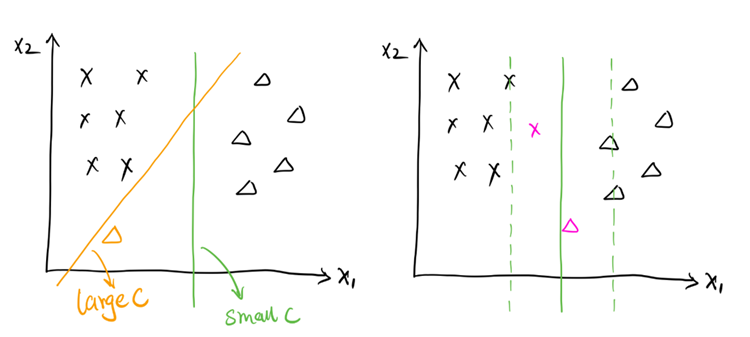 x₂
x₁
large C
small C
x₂
x₁